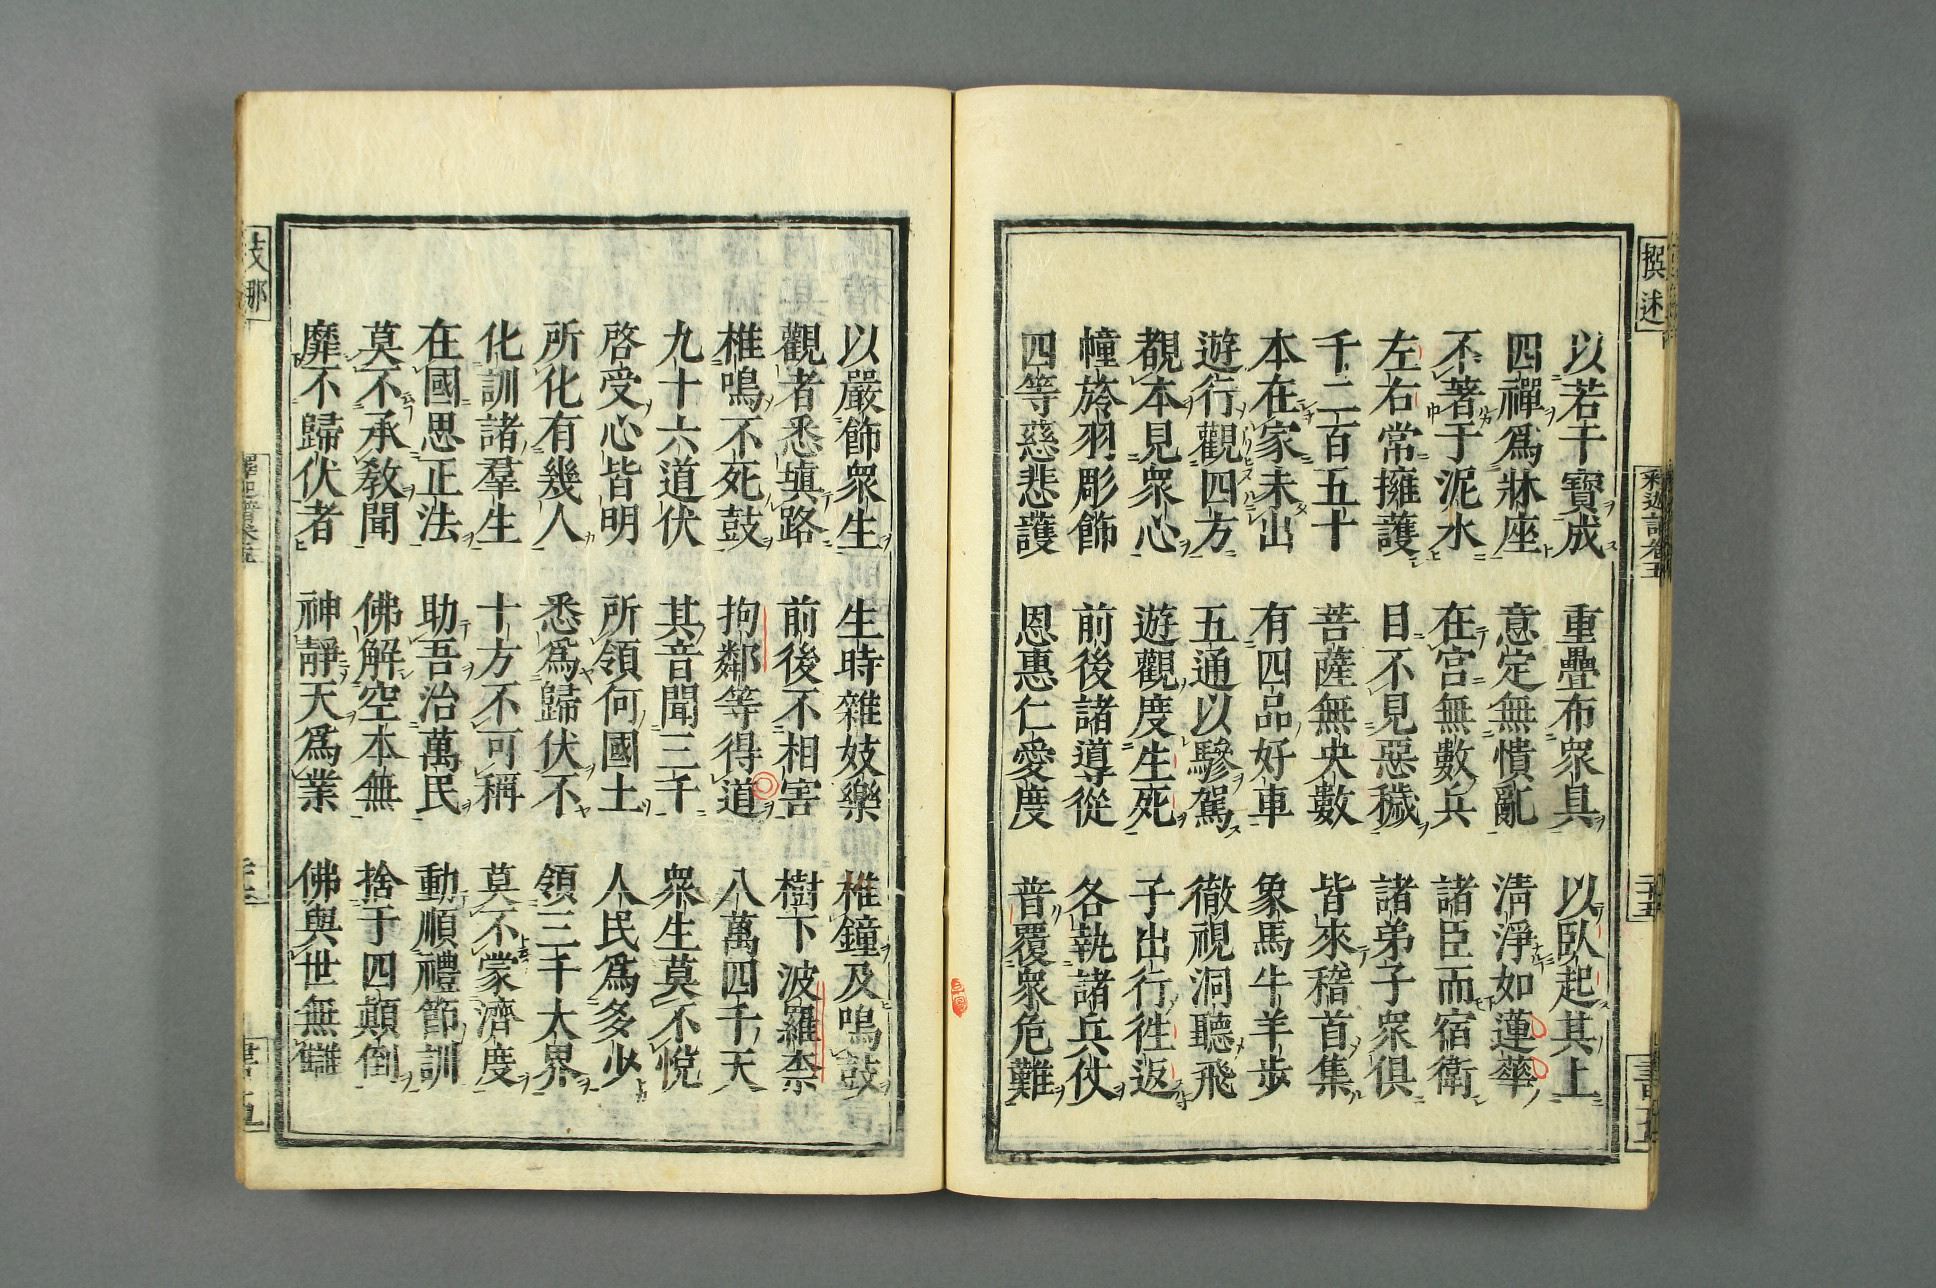 撰述
釋迦譜卷五
以若干寶成 重疊布衆具 以臥起其上
四禪爲牀座 意定無憒亂 淸淨如蓮華
不著于泥水 在宮無數兵 諸臣而宿衛
左右常擁護 目不見惡穢 諸弟子衆俱
千二百五十 菩薩無央數 皆來稽首集
本在家未出 有四品好車 象馬牛羊步
遊行觀四方 五通以驂駕 徹視洞聽飛
覩本見衆心 遊觀度生死 子出行徃返
幢旍羽彫飾 前後諸導從 各執諸兵仗
四等慈悲護 恩惠仁愛度 普覆衆危難
以嚴飾衆生 生時雜妓樂 椎鐘及鳴鼓
觀者悉塡路 前後不相害 樹下波羅柰
椎鳴不死鼓 拘鄰等得道 八萬四千天
九十六道伏 其音聞三千 衆生莫不悅
啓受心皆明 所領何國土 人民爲多少
所化有幾人 悉爲歸伏不 領三千大界
化訓諸羣生 十方不可稱 莫不蒙濟度
在國思正法 助吾治萬民 動順禮節訓
莫不承敎聞 佛解空本無 捨于四顚倒
靡不歸伏者 神靜天爲業 佛與世無讎
支那